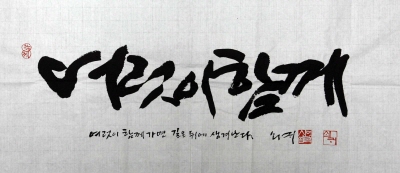 여럿이함께
여럿이 함께 가면 길은 뒤에 생겨난다.